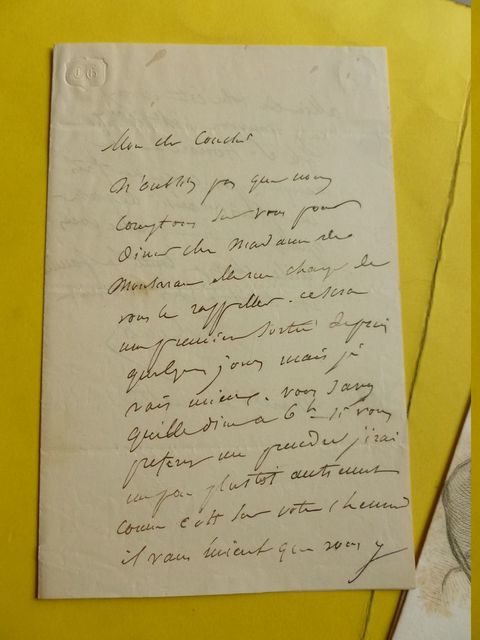 Mon cher
N'oubliez pas que nous
comptons sur vous pour
diner chez Madame de
elle me charge de
vous le rappeller. ce sera
ma premiere sortie depuis
quelques jours mais je
vais mieux. vous savez
qu'elle dine a 6h. si vous
preferez me prendre j'irai
un peu plustôt autrement
comme c'est sur votre chemin
il vaus mieux que vous y